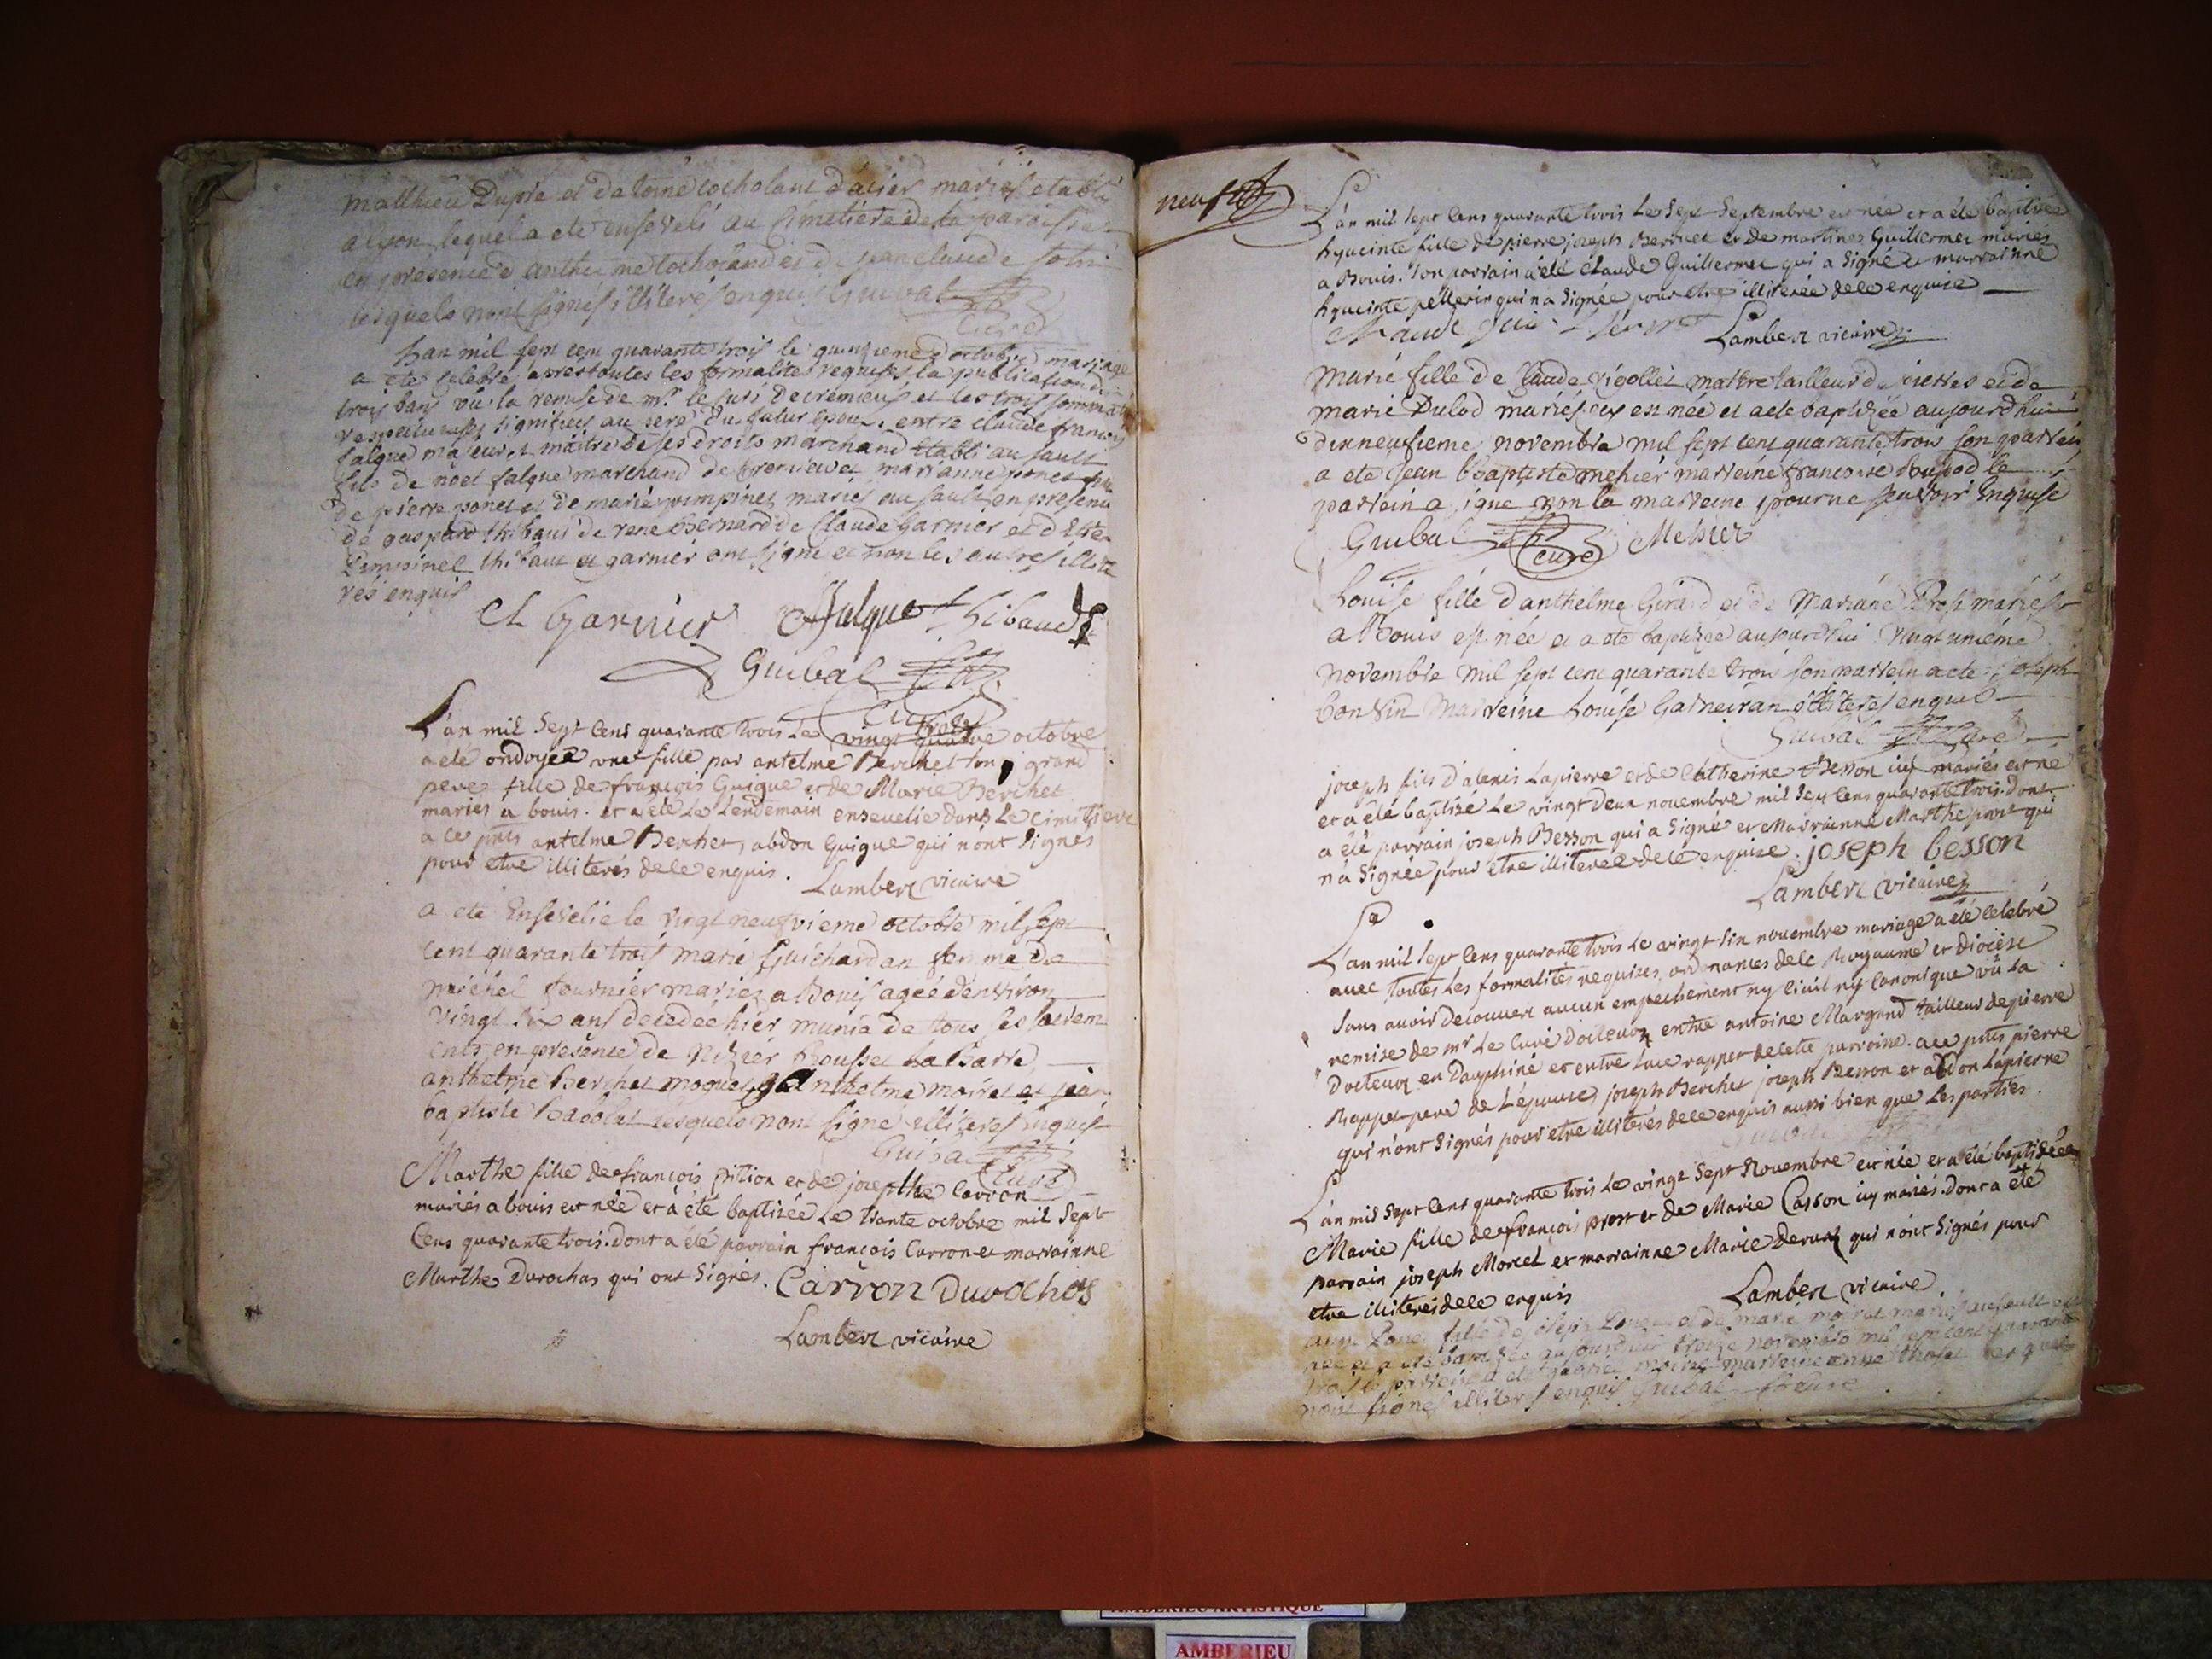 matthieu Dupré et d'atoine cocholant d'acier mariés etabli
a lyon lequel a ete enseveli au cimetiere de la paroisse
en presence d'anthelme cocholand et de jean claude
lesquels n'ont signés illiterés enquis Guibal
curé
L'an mil sept cent quarante trois le quinzieme d'octobre mariage
a ete celebré apres toutes les formalités requises la publication de
trois bans vu la remise de mr. le curé de cremieux et les trois sommations
respectueuses signifiées au pere du futur epoux. entre claude francois
falque majeur et maitre de ses droits marchand etabli au sault
fils de noel falque marchand de cremieu et marianne ponet fille
de pierre ponet et de marie pimpinet mariés au sault, en presence
de gaspard thibaud de rene bernard de Claude garnier et d'
pimpinel thibaut et garnier ont signé et non les autres illite
rés enquis
Cl Garnier Cffalque thibaud
Guibal
Curé
L'an mil sept cens quarante trois le vingt quatre octobre
a été ondoyée une fille par antelme Berchet son grand
pere fille de françois Guigue et de Marie Berchet
mariés a bouis. et a été le lendemain ensevelie dans le cimitiere
a ce pnts antelme Berchet, abdon Guigue qui n'ont signés
pour etre illiterés de ce enquis. Lambert vicaire
a ete Ensevelie le vingt neufvieme octobre mil sept
cent quarante trois marie Guichardan femme de
michel fournier mariez a Bouis agée d'environ
vingt six ans decedee hier munie de tous ses sacrem
ents en presence de Nizier Rousset La Barre
anthelme Berchet moquet d'anthelme moiret et jean
baptiste Babolat lesquels n'ont signé illiterés enquis
Guibal
Curé
Marthe fille de françois pition et de josephte Carron
mariés a bouis est née et a été baptizée le trante octobre mil sept
Cens quarante trois. dont a été parrain françois Carron et marrainne
Marthe Durochas qui ont signés. Carron Durochas
Lambert vicaire
neuf
L'an mil sept cens quarante trois le sept Septembre est née et a été baptizée
hyacinte fille de pierre joseph Berchet et de martines Guillermet mariés
a Bouis. son parrain a été Claude Guillermet qui a signé et marrainne
hyacinte pellerin qui n'a signée pour etre illiterée de ce enquise
Claude guillermet Lambert vicaire
Marie fille de Claude vigollet maitre tailleur de pierres et de
marie Dulod mariés icy est née et a ete baptizée aujourd'hui
dixneufieme novembre mil sept cent quarante trois son parrein
a ete jean Baptiste mehier marreine francoise loupod le
parrein a signé non la marreine pour ne scavoir Enquise
Guibal curé Mehier
Louise fille d'anthelme Girard et de Mariane Prost mariés
a Bouis est née et a ete baptizée aujourd'hui vingt unieme
novembre mil sept cent quarante trois son parrein a ete joseph
bonvin Marreine Louise Garneiran illiterés enquis
Guibal Curé
joseph fils d'alexis Lapierre et de Catherine Besson icy mariés est né
et a été baptizé le vingt deux novembre mil sept cens quarante trois. dont
a été parrain joseph Besson qui a signé et Marrainne Marthe prost qui
n'a signée pour etre illiterée de ce enquise. joseph besson
Lambert vicaire
L'an mil sept cens quarante trois le vingt six novembre mariage a été celebré
avec toutes les formalités requizes, ordonances de le Royaume et diocese
sans avoir decouvert aucun empechement ny Civil ny Canonique vû la
remise de mr le Curé D'octeuoz entre antoine Margand tailleur de pierre
D'octeuoz en Dauphiné et entre Luce rappet de cette parroisse. a ce pnts pierre
Rappet pere de L'épouse, joseph Berchet joseph Besson et abdon Lapierre
qui n'ont signés pour etre illiterés de ce enquis aussi bien que les parties.
Guibal
L'an mil sept cens quarante trois le vingt sept Novembre est née et a été baptizée
Marie fille de françois prost et de Marie Casson icy mariés. dont a été
parrain joseph Morcel et marrainne Marie Deruaz qui n'ont signés pour
etre illiterés de ce enquis Lambert vicaire.
anne Ponet fille de joseph Ponet et de marie moiret mariés au sault est
née et a ete baptizée aujourd'hui treize novembre mil sept cent quarante
trois le parrein a ete moiret marreine anne lesquels
n'ont signés illiterés enquis Guibal Curé
AMBERIEU ARTISTIQUE
AMBERIEU